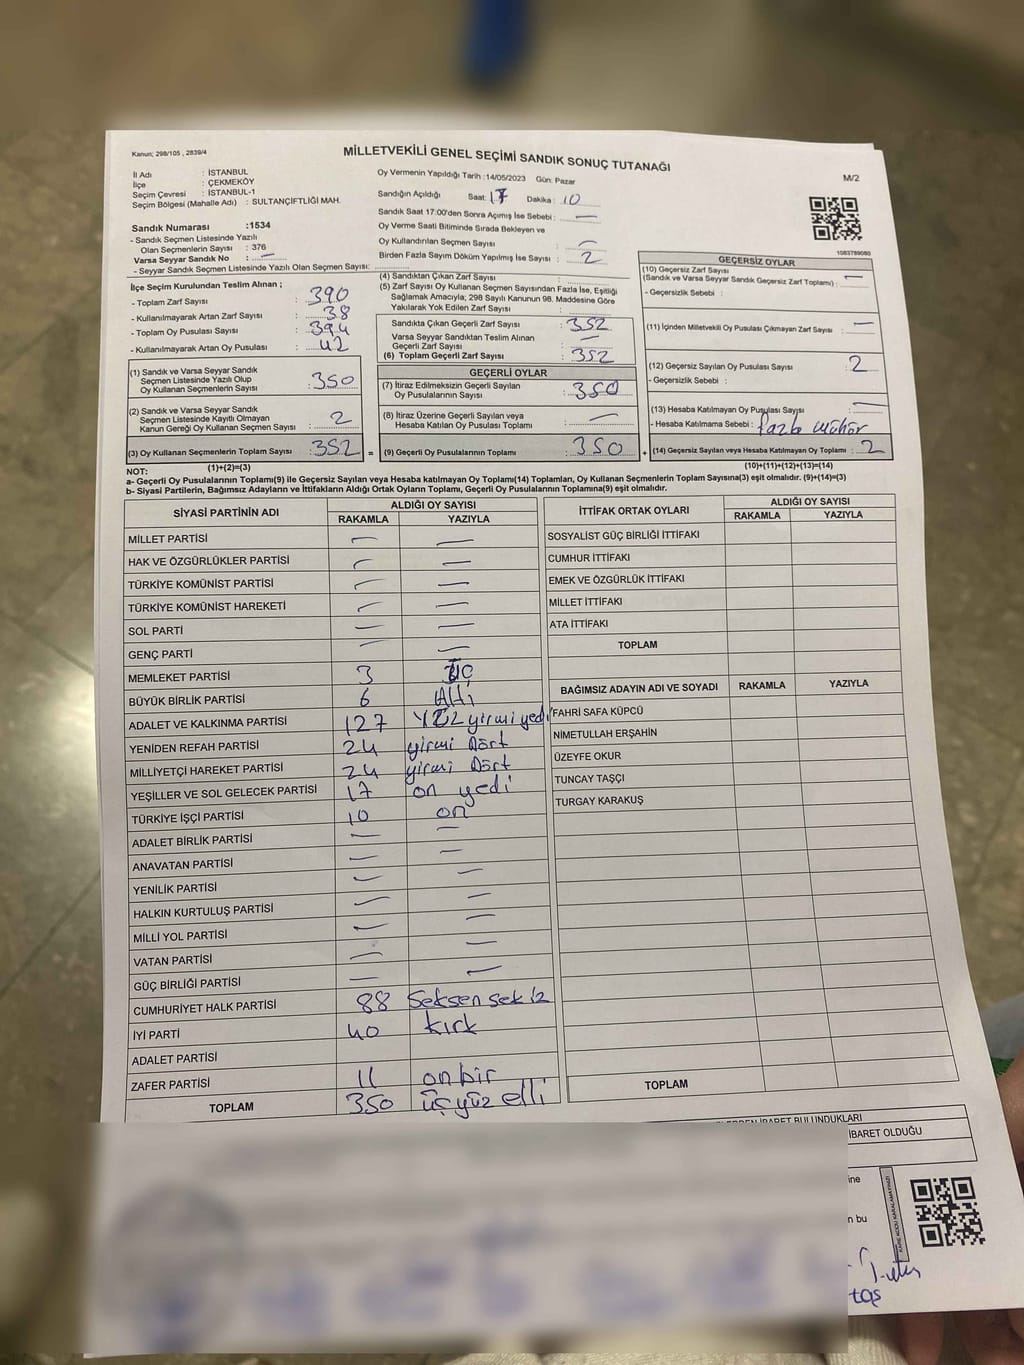 Kanun; 298/105 , 2839/4
MİLLETVEKİLİ GENEL SEÇİMİ SANDIK SONUÇ TUTANAĞI
M/2
İl Adı : İSTANBUL
İlçe : ÇEKMEKÖY
Seçim Çevresi : İSTANBUL-1
Seçim Bölgesi (Mahalle Adı) : SULTANÇİFTLİĞİ MAH.
Oy Vermenin Yapıldığı Tarih :14/05/2023 Gün: Pazar
Sandığın Açıldığı Saat: 17 Dakika : 10
Sandık Saat 17:00'den Sonra Açımış İse Sebebi : —
Oy Verme Saati Bitiminde Sırada Bekleyen ve
Oy Kullandırılan Seçmen Sayısı : —
Birden Fazla Sayım Döküm Yapılmış İse Sayısı : 2
1083789080
Sandık Numarası :1534
- Sandık Seçmen Listesinde Yazılı
Olan Seçmenlerin Sayısı : 376
Varsa Seyyar Sandık No : —
- Seyyar Sandık Seçmen Listesinde Yazılı Olan Seçmen Sayısı:
İlçe Seçim Kurulundan Teslim Alınan ;
- Toplam Zarf Sayısı : 390
- Kullanılmayarak Artan Zarf Sayısı : 38
- Toplam Oy Pusulası Sayısı : 394
- Kullanılmayarak Artan Oy Pusulası : 42
(1) Sandık ve Varsa Seyyar Sandık
Seçmen Listesinde Yazılı Olup
Oy Kullanan Seçmenlerin Sayısı : 350
(2) Sandık ve Varsa Seyyar Sandık
Seçmen Listesinde Kayıtlı Olmayan
Kanun Gereği Oy Kullanan Seçmen Sayısı : 2
(3) Oy Kullanan Seçmenlerin Toplam Sayısı : 352 =
(1)+(2)=(3)
(4) Sandıktan Çıkan Zarf Sayısı :
(5) Zarf Sayısı Oy Kullanan Seçmen Sayısından Fazla İse, Eşitliği
Sağlamak Amacıyla; 298 Sayılı Kanunun 98. Maddesine Göre
Yakılarak Yok Edilen Zarf Sayısı :
Sandıkta Çıkan Geçerli Zarf Sayısı : 352
Varsa Seyyar Sandıktan Teslim Alınan
Geçerli Zarf Sayısı : —
(6) Toplam Geçerli Zarf Sayısı : 352
GEÇERLİ OYLAR
(7) İtiraz Edilmeksizin Geçerli Sayılan
Oy Pusulalarının Sayısı : 350
(8) İtiraz Üzerine Geçerli Sayılan veya
Hesaba Katılan Oy Pusulası Toplamı : —
(9) Geçerli Oy Pusulalarının Toplamı : 350 +
GEÇERSİZ OYLAR
(10) Geçersiz Zarf Sayısı
(Sandık ve Varsa Seyyar Sandık Geçersiz Zarf Toplamı) : —
- Geçersizlik Sebebi :
(11) İçinden Milletvekili Oy Pusulası Çıkmayan Zarf Sayısı : —
(12) Geçersiz Sayılan Oy Pusulası Sayısı : 2
- Geçersizlik Sebebi :
(13) Hesaba Katılmayan Oy Pusulası Sayısı : —
- Hesaba Katılmama Sebebi : fazla mühür
(14) Geçersiz Sayılan veya Hesaba Katılmayan Oy Toplamı : 2
(10)+(11)+(12)+(13)=(14)
NOT:
a- Geçerli Oy Pusulalarının Toplamı(9) ile Geçersiz Sayılan veya Hesaba katılmayan Oy Toplamı(14) Toplamları, Oy Kullanan Seçmenlerin Toplam Sayısına(3) eşit olmalıdır. (9)+(14)=(3)
b- Siyasi Partilerin, Bağımsız Adayların ve İttifakların Aldığı Ortak Oyların Toplamı, Geçerli Oy Pusulalarının Toplamına(9) eşit olmalıdır.
SİYASİ PARTİNİN ADI ALDIĞI OY SAYISI
RAKAMLA YAZIYLA
MİLLET PARTİSİ — —
HAK VE ÖZGÜRLÜKLER PARTİSİ — —
TÜRKİYE KOMÜNİST PARTİSİ — —
TÜRKİYE KOMÜNİST HAREKETİ — —
SOL PARTİ — —
GENÇ PARTİ — —
MEMLEKET PARTİSİ 3 üç
BÜYÜK BİRLİK PARTİSİ 6 Altı
ADALET VE KALKINMA PARTİSİ 127 YÜZ yirmi yedi
YENİDEN REFAH PARTİSİ 24 yirmi Dört
MİLLİYETÇİ HAREKET PARTİSİ 24 yirmi Dört
YEŞİLLER VE SOL GELECEK PARTİSİ 17 on yedi
TÜRKİYE İŞÇİ PARTİSİ 10 on
ADALET BİRLİK PARTİSİ — —
ANAVATAN PARTİSİ — —
YENİLİK PARTİSİ — —
HALKIN KURTULUŞ PARTİSİ — —
MİLLİ YOL PARTİSİ — —
VATAN PARTİSİ — —
GÜÇ BİRLİĞİ PARTİSİ — —
CUMHURİYET HALK PARTİSİ 88 Seksen sekiz
İYİ PARTİ 40 kırk
ADALET PARTİSİ
ZAFER PARTİSİ 11 onbir
TOPLAM 350 üçyüz elli
İTTİFAK ORTAK OYLARI ALDIĞI OY SAYISI
RAKAMLA YAZIYLA
SOSYALİST GÜÇ BİRLİĞİ İTTİFAKI
CUMHUR İTTİFAKI
EMEK VE ÖZGÜRLÜK İTTİFAKI
MİLLET İTTİFAKI
ATA İTTİFAKI
TOPLAM
BAĞIMSIZ ADAYIN ADI VE SOYADI RAKAMLA YAZIYLA
FAHRİ SAFA KÜPCÜ
NİMETULLAH ERŞAHİN
ÜZEYFE OKUR
TUNCAY TAŞÇI
TURGAY KARAKUŞ
TOPLAM
İBARET BULUNDUKLARI
İBARET OLDUĞU
ine
n bu
taş